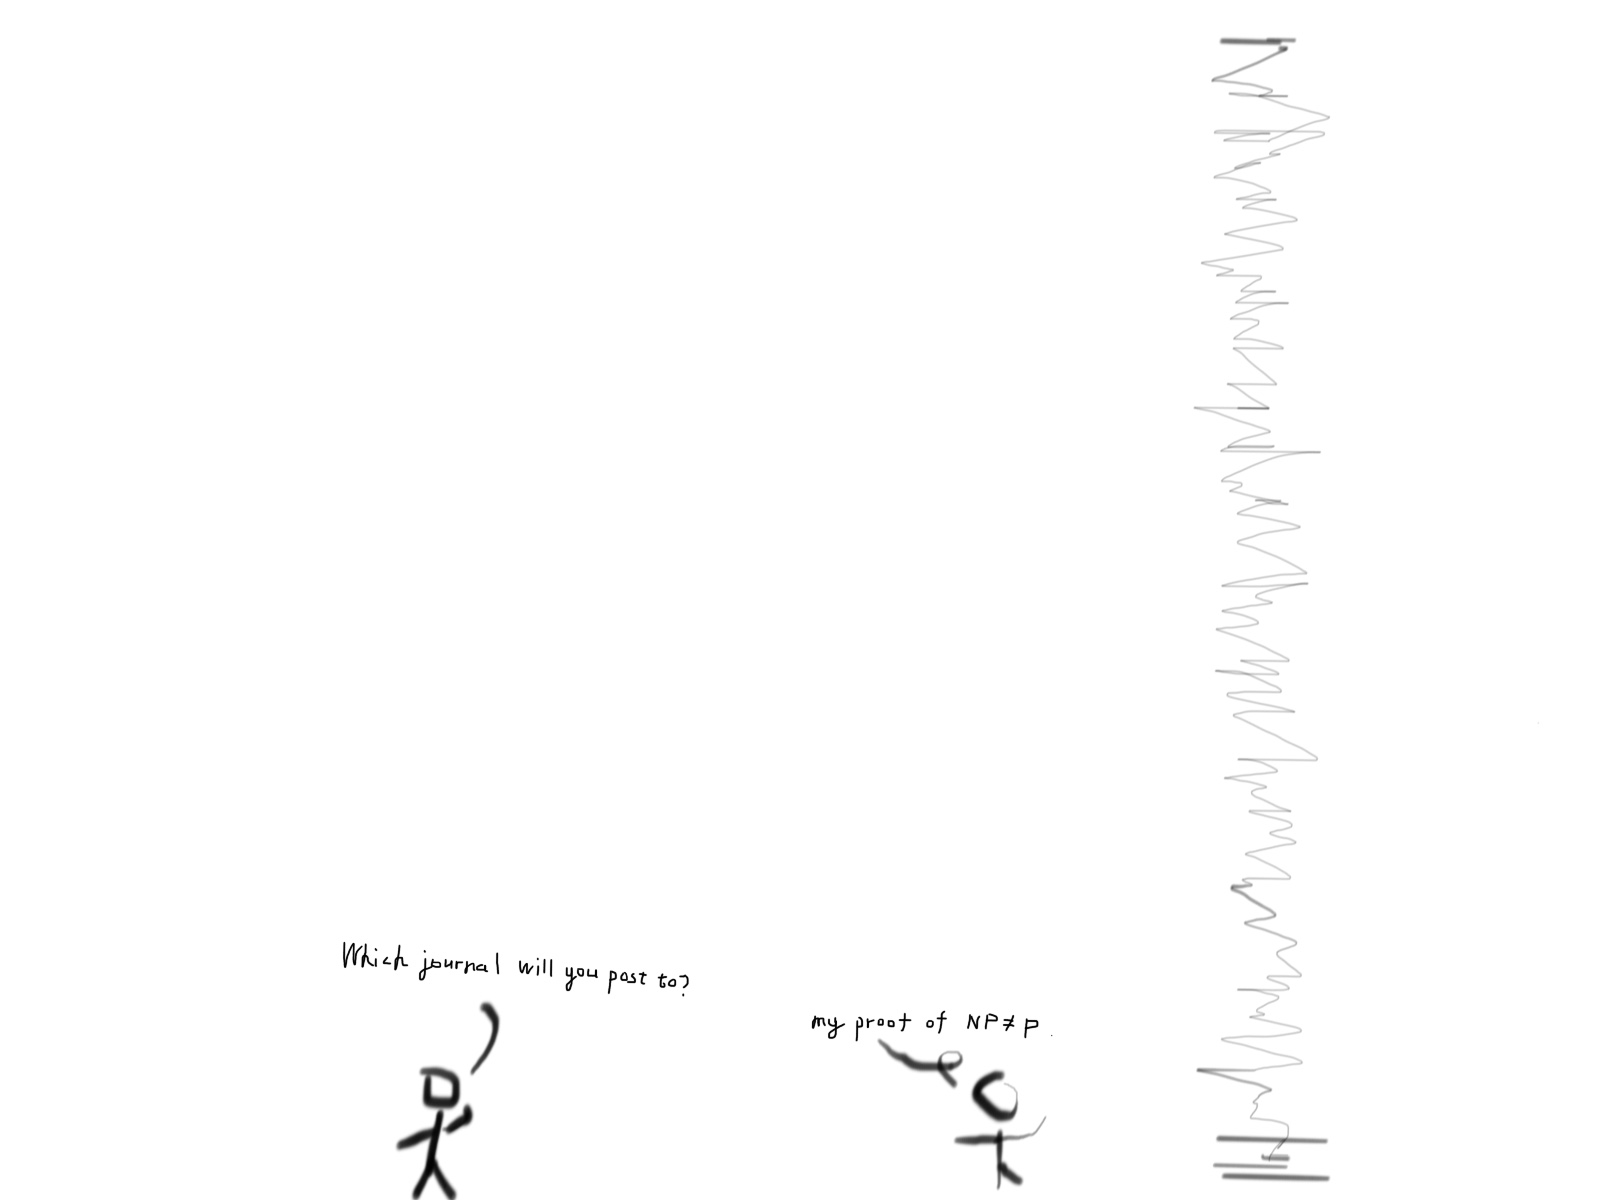 Which journal will you post to?
my proof of NP≠P.